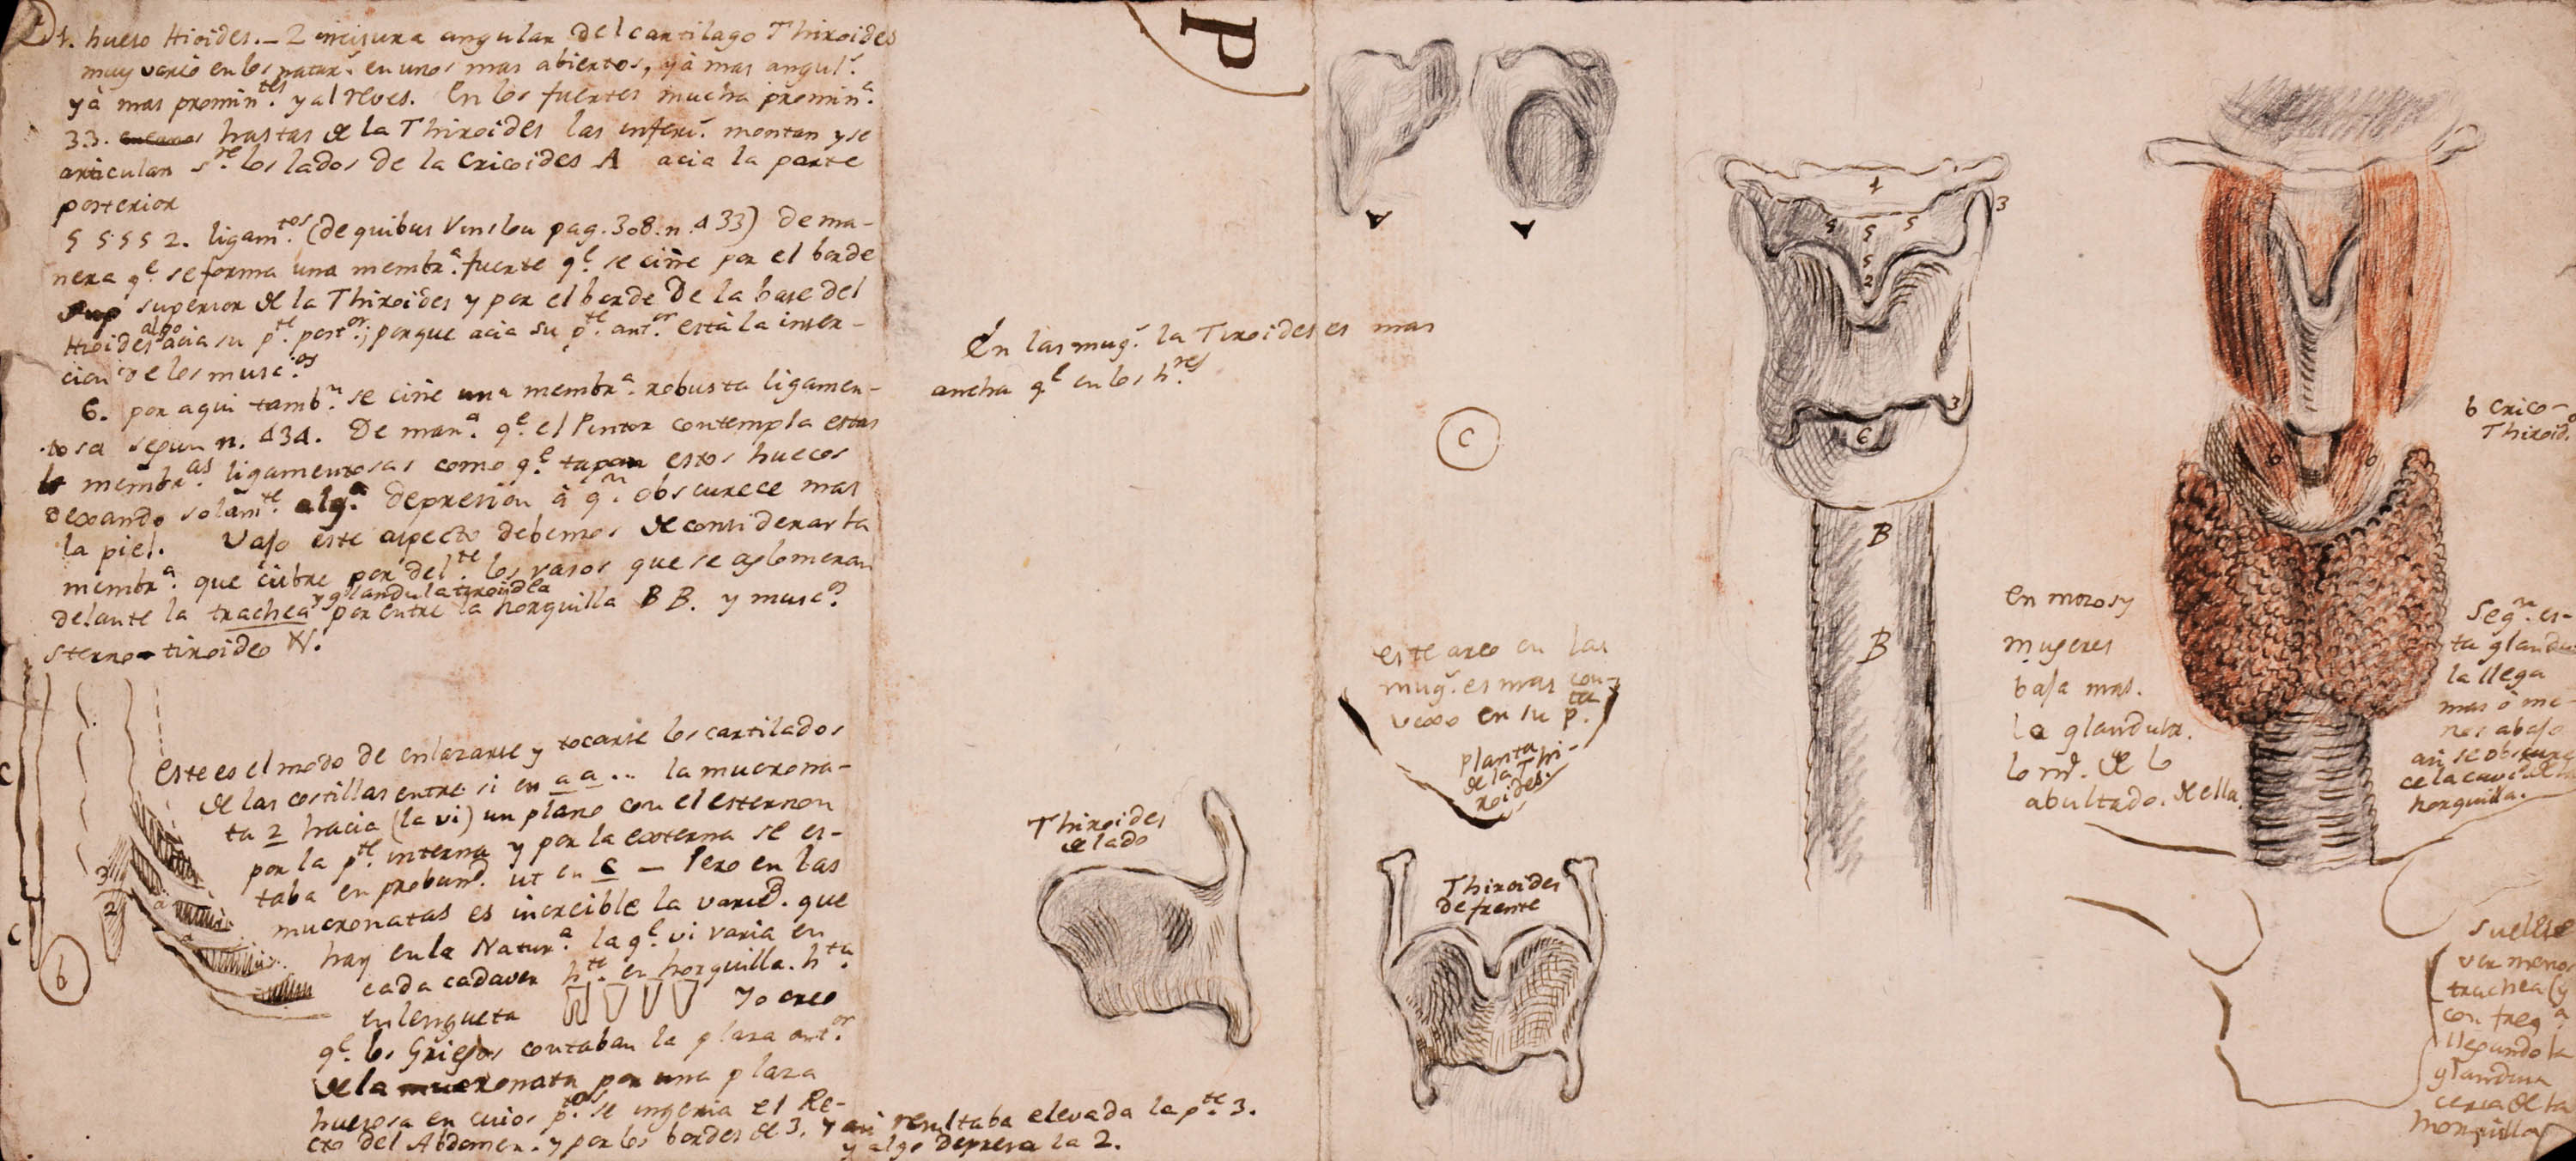 1. hueso Hioides. – 2 incisura angular del cartilago Thiroides
muy vario en los natur.s en unos mas abiertos, yà mas angul.s
yà mas promin.tes y al reves. En los fuertes mucha promin.a
3.3. hastas de la Thiroides las inferi.s montan y se
articulan s.re los lados de la Cricoides A acia la parte
posterior
5 5 5 5 2. ligam.tos (de quibus Vinslou pag. 308. n. 433) de ma-
nera q.e se forma una membr.a fuerte q.e se ciñe por el borde
superior de la Thiroides y por el borde de la base del
Hioides algo acia su p.te post.or; porque acia su p.te ant.or està la inser-
cion de los musc.os
6. por aqui tamb.n se ciñe una membr.a robusta ligamen-
tosa segun n. 434. De man.a q.e el Pintor contempla estas
membr.as ligamentosas como q.e tapan estos huecos
dexando solam.te alg.a depresion à q.n obscurece mas
la piel. Vajo este aspecto debemos de considerar la
membr.a que cubre por del.te los vasos que se aglomeran
delante la trachea y glandula tiroidea por entre la horquilla B B. y musc.os
sterno-tiroideo N.
Este es el modo de enlazarse y tocarse los cartilados
de las costillas entre si en a a .. la mucrona-
ta 2 hacia (la vi) un plano con el esternon
por la p.te interna y por la externa se es-
taba en probund. ut in c – Pero en las
mucronatas es increible la varied. que
hay en la Natur.a la q.e vi varia en
cada cadaver h.te en horquilla. h.ta
en lengueta Yo creo
q.e los Griegos contaban la plaza ant.or
de la mucronata por una plaza
huesosa en cuios p.tos se ingeria el Re-
cto del Abdomen. y por los bordes de 3. y asi resultaba elevada la p.te 3.
y algo depresa la 2.
C
C
3
2
a
a
b
P
A
A
En las mug.s la Tiroides es mas
ancha q.e en los h.res
C
este arco en las
mug.s es mas con-
vexo en su p.
planta
de la Thi-
roides.
Thiroides
de lado
Thiroides
de frente
3
5
5
5
5
2
3
6
B
B
b
b
b Crico-
Thiroid.
en mozos y
mugeres
baja mas.
la glandula.
lo m. de lo
abultado. de ella.
Seg.n es-
ta glandu
la llega
mas ó me-
nos abajo
asi se obscure
ce la
horquilla.
Suelese
ver menos
trachea (y
con freq.a
llegando la
glandula
cerca de la
horquilla